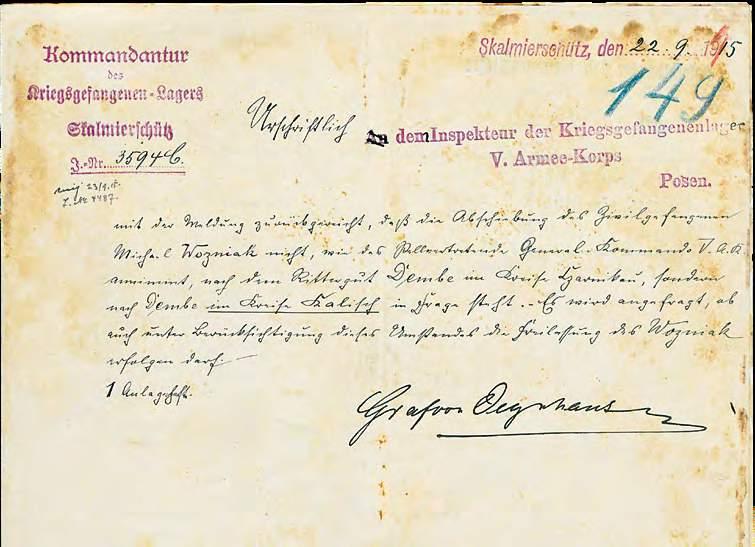 Kommandantur
des
Kriegsgefangenen-Lagers
Skalmierschütz
J.-Nr. 3594 C.
23/9. 15.
J. Nr 4487.
Skalmierschütz, den 22. 9. 1915
149
Urschriftlich
An dem Inspekteur der Kriegsgefangenenlager
V. Armee-Korps
Posen.
mit der Meldung zurückgereicht, daß die Abschiebung des Zivilgefangenen
Michael Wozniak nicht, wie das Stellvertretende General-Kommando V. A.K.
annimmt, nach dem Rittergut Dembe im Kreise Czarnikau, sondern
nach Dembe im Kreise Kalisch in Frage steht. - Es wird angefragt, ob
auch unter Berücksichtigung dieses Umstandes die Freilassung des Wozniak
erfolgen darf.
1 Anlageheft.
Graf von